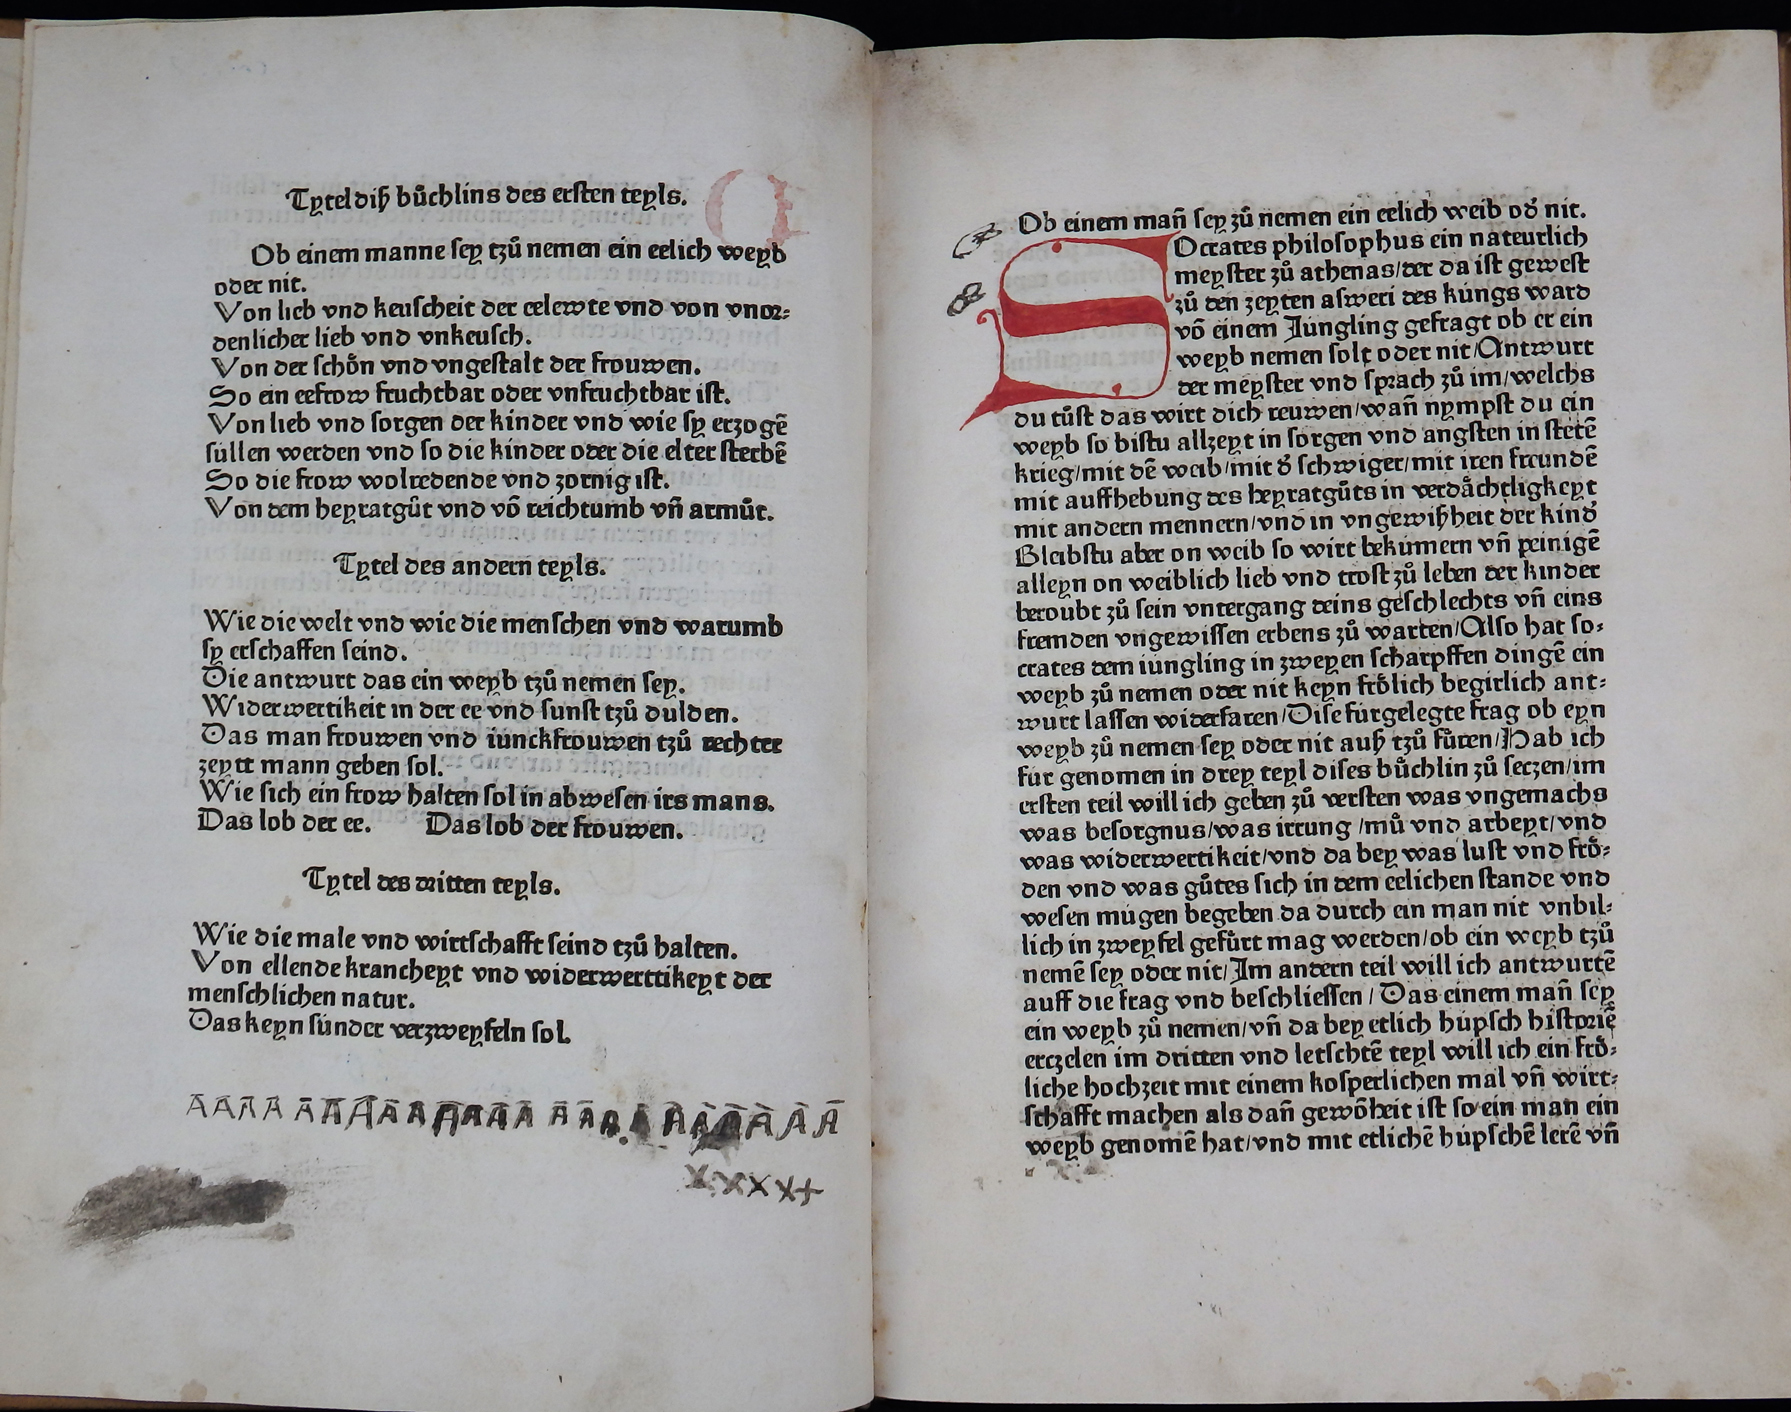 Tytel diß bůchlins des ersten teyls.
Ob einem manne sey tzů nemen ein eelich weyb
oder nit.
Von lieb vnd keuscheit der eelewte vnd von vnor⸗
denlicher lieb vnd vnkeusch.
Von der schoͤn vnd vngestalt der frouwen.
So ein eefrow fruchtbar oder vnfruchtbar ist.
Von lieb vnd sorgen der kinder vnd wie sy erzogē
süllen werden vnd so die kinder oder die elter sterbē
So die frow wolredende vnd zornig ist.
Von dem heyratgůt vnd vō reichtumb vn̄ armůt.
Tytel des andern teyls.
Wie die welt vnd wie die menschen vnd warumb
sy erschaffen seind.
Die antwurt das ein weyb tzů nemen sey.
Widerwertikeit in der ee vnd sunst tzů dulden.
Das man frouwen vnd iunckfrouwen tzů rechter
zeytt mann geben sol.
Wie sich ein frow halten sol in abwesen irs mans.
Das lob der ee. Das lob der frouwen.
Tytel des dritten teyls.
Wie die male vnd wirtschafft seind tzů halten.
Von ellende krancheyt vnd widerwerttikeyt der
menschlichen natur.
Das keyn sünder verzweyfeln sol.
A A A A A A A A A A A A A A A A A A A A A A A
X X X X +
Ob einem man̄ sey zů nemen ein eelich weib od' nit.
SOcrates philosophus ein nateurlich
meyster zů athenas/der da ist gewest
zů den zeyten asweri des küngs ward
vō einem Jüngling gefragt ob er ein
weyb nemen solt oder nit/Antwurt
der meyster vnd sprach zů im/welchs
du tůst das wirt dich reuwen/wan̄ nympst du ein
weyb so bistu allzeyt in sorgen vnd angsten in stetē
krieg/mit dē weib/mit d' schwiger/mit iren freundē
mit auffhebung des heyratgůts in verdaͤchtligkeyt
mit andern mennern/vnd in vngewißheit der kind'
Bleibstu aber on weib so wirt bekümern vn̄ peinigē
alleyn on weiblich lieb vnd trost zů leben der kinder
beroubt zů sein vntergang deins geschlechts vn̄ eins
fremden vngewissen erbens zů warten/Also hat so⸗
crates dem iüngling in zweyen scharpffen dingē ein
weyb zů nemen oder nit keyn froͤlich begirlich ant⸗
wurt lassen widerfaren/Dise fürgelegte frag ob eyn
weyb zů nemen sey oder nit auß tzů fůren/Hab ich
für genomen in drey teyl dises bůchlin zů seczen/im
ersten teil will ich geben zů versten was vngemachs
was besorgnus/was irrung /mů vnd arbeyt/vnd
was widerwertikeit/vnd da bey was lust vnd froͤ⸗
den vnd was gůtes sich in dem eelichen stande vnd
wesen mügen begeben da durch ein man nit vnbil⸗
lich in zweyfel gefůrt mag werden/ob ein weyb tzů
nemē sey oder nit/Im andern teil will ich antwurtē
auff die frag vnd beschliessen / Das einem man̄ sey
ein weyb zů nemen/vn̄ da bey etlich hüpsch historiē
erczelen im dritten vnd letschtē teyl will ich ein froͤ⸗
liche hochzeit mit einem kosperlichen mal vn̄ wirt⸗
schafft machen als dan̄ gewōheit ist so ein man ein
weyb genomē hat/vnd mit etlichē hüpschē lerē vn̄